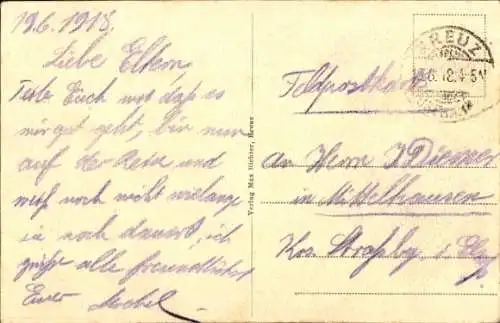 19.6.1918.
Liebe Eltern,
Teile Euch mit daß es
mir gut geht, bin nur
auf der Reise und
weiß noch nicht wielange
noch dauert, ich
grüße alle freundlichst
Euer
Verlag Max Richter, Kreuz
KREUZ
Feldpostkarte
An Herrn
in Mittelhausen
Krs Straßbg i. Els